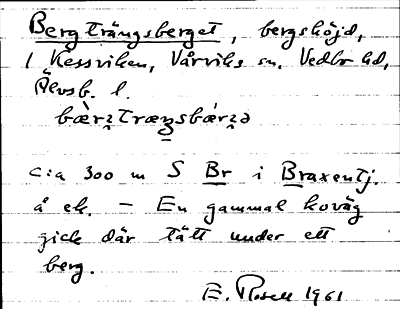 Bergträngsberget, bergshöjd,
i Kessviken, Vårviks sn, Vedbo hd,
Älvsb. l.
c:a 300 m S Br i Braxentj.
å ek. – En gammal koväg
gick där tätt under ett
berg.
E. Rosell 1961